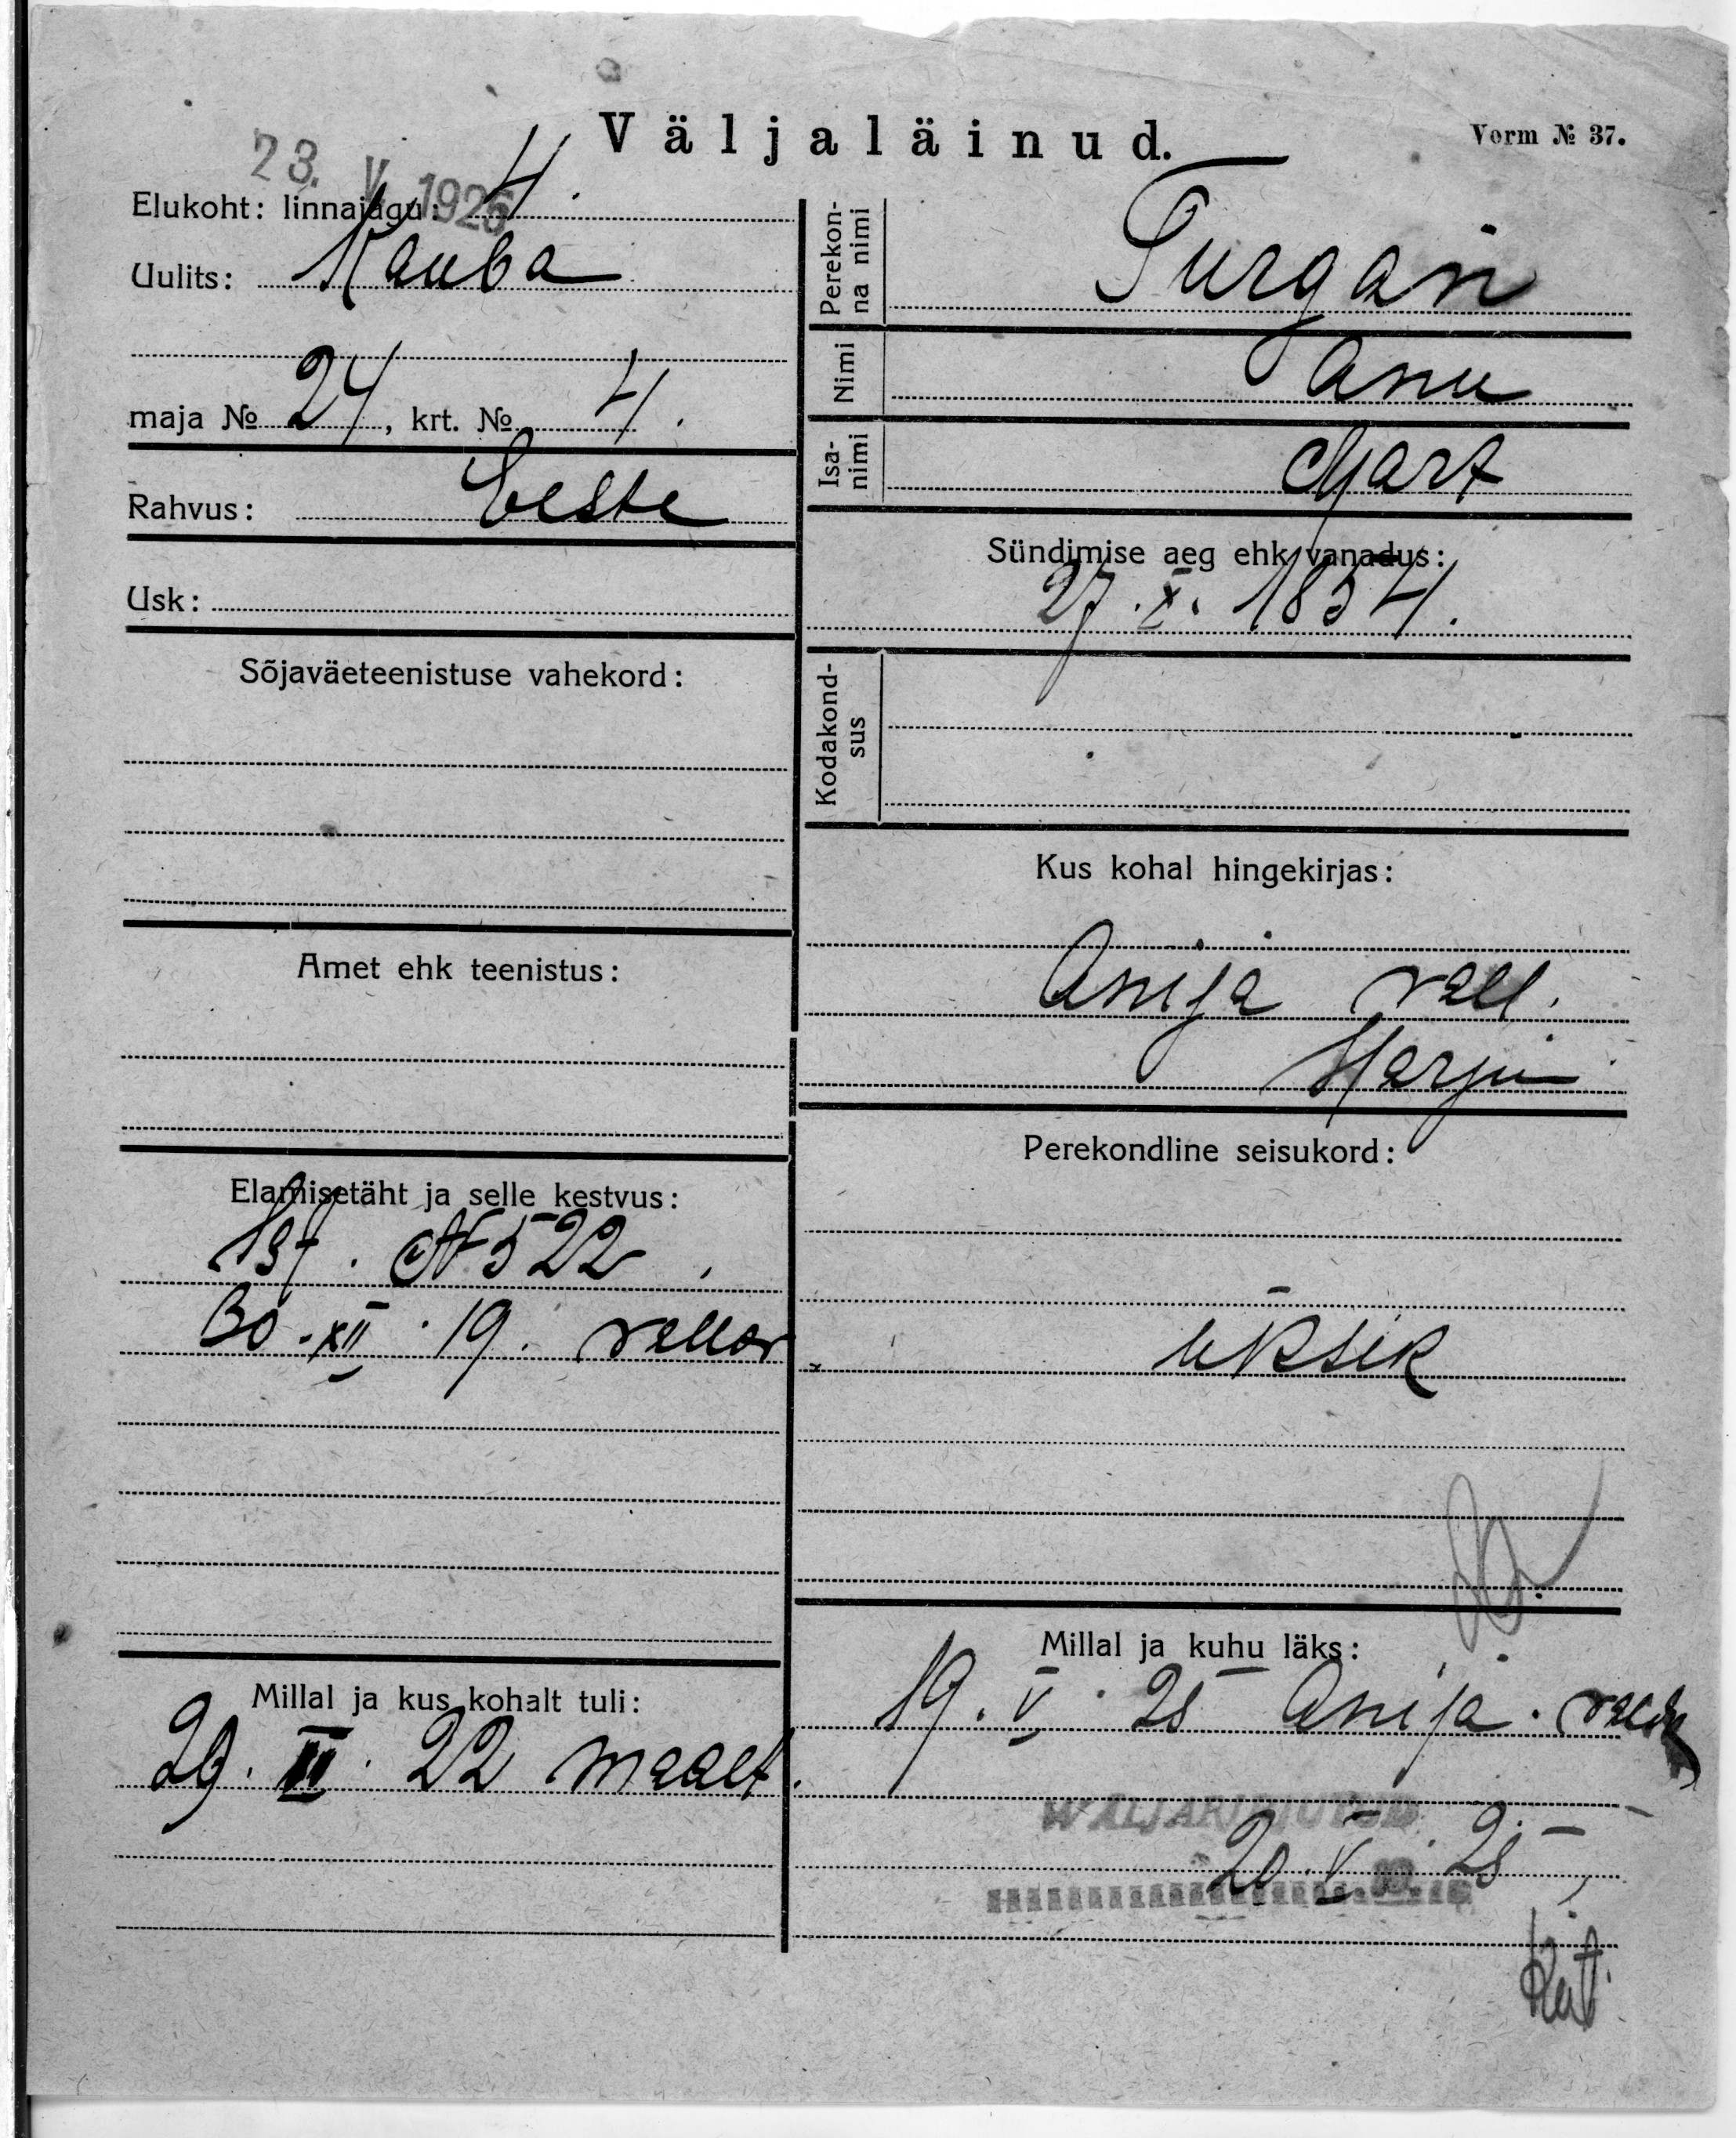 Väljaläinud.
Vorm № 37.
23. V 1925
Elukoht: linnajagu: 4.
Uulits: Kauba
maja № 24, krt. № 4.
Rahvus: Eeste
Usk:
Sõjaväeteenistuse vahekord:
Amet ehk teenistus:
Elamisetäht ja selle kestvus:
Ist. N 522
30. XII. 19. vallav.
Millal ja kus kohalt tuli:
29. III. 22 maalt.
Perekonna nimi Turgan
Nimi Anu
Isanimi Mart
Sündimise aeg ehk vanadus:
27. X. 1854.
Kodakondsus
Kus kohal hingekirjas:
Anija vall.
Harju
Perekondline seisukord:
üksik
Millal ja kuhu läks:
19. V. 25 Anija. valda
WÄLJAKIRJUTUD
20. V. 25